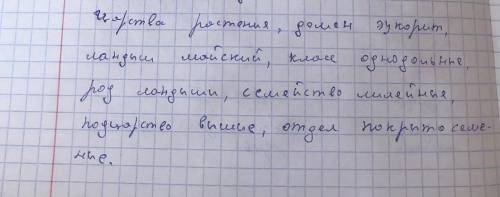 Царства растения, домен эукорит,
ландыш майский, класс однодольные,
род ландыши, семейство лилейные,
подцарство высшие, отдел покрытосеме-
ные.